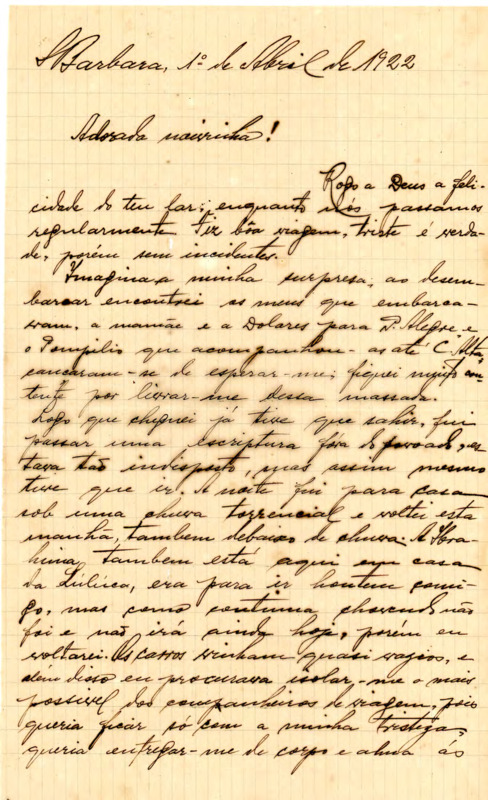 S. Barbara, 1º de Abril de 1922
Adorada noivinha!
Rogo a Deus a feli-
cidade do teu lar; enquanto nós passamos
regularmente. Fiz bôa viagem, triste é verda-
de, porém sem incidentes.
Imagina a minha surpresa, ao desem-
barcar encontrei os meus que embarca-
vam, a mamãe e a Dolores para P. Alegre e
o Pompilio que acompanhou-as até C. Alta,
cancaram-se de esperar-me; fiquei muito con-
tente por livrar-me dessa massada.
Logo que cheguei já tive que sahir, fui
passar uma escriptura fora do povoado, es
tava tão indisposto, mas assim mesmo
tive que ir. A noite fui para casa
sob uma chuva torrencial e voltei esta
manhã, tambem debaixo de chuva. A
hina tambem está aqui em casa
da Lulúca, era para ir hontem comi-
go, mas como continua chovendo não
foi e não irá ainda hoje, porém eu
voltarei. Os carros vinham quasi vazios, e
além disso eu procurava isolar-me o mais
possivel dos companheiros de viagem, pois
queria ficar só com a minha tristeza,
queria entregar-me de corpo e alma ás